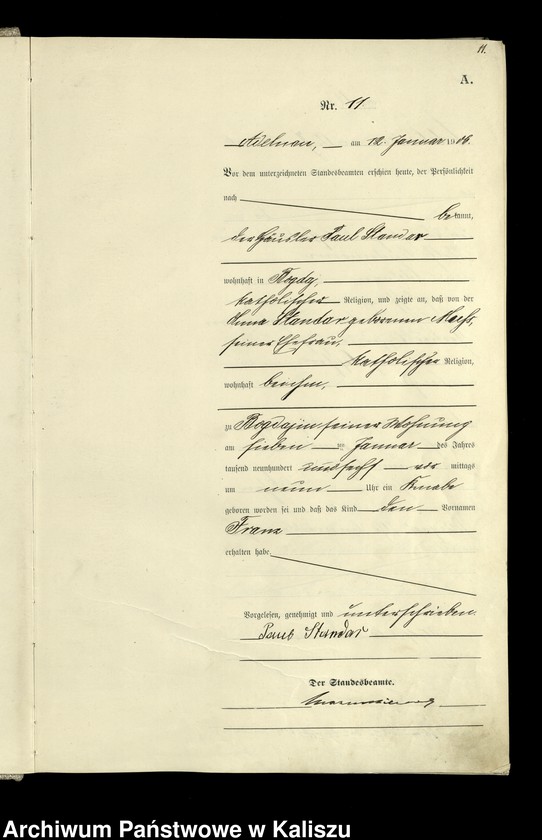 11.
A.
Nr. 11
Adelnau, am 12. Januar 1906.
Vor dem unterzeichneten Standesbeamten erschien heute, der Persönlichkeit
nach
bekannt,
der Häusler Paul Standar
wohnhaft in Bogdaj,
katholischer Religion, und zeigte an, daß von der
Anna Standar geborenen
seiner Ehefrau,
katholischer Religion,
wohnhaft bei ihm,
zu Bogdaj in seiner Wohnung
am sieben ten Januar des Jahres
tausend neunhundert und sechs vor mittags
um neun Uhr ein Knabe
geboren worden sei und daß das Kind den Vornamen
Franz
erhalten habe.
Vorgelesen, genehmigt und unterschrieben.
Paul Standar
Der Standesbeamte.
Archiwum Państwowe w Kaliszu